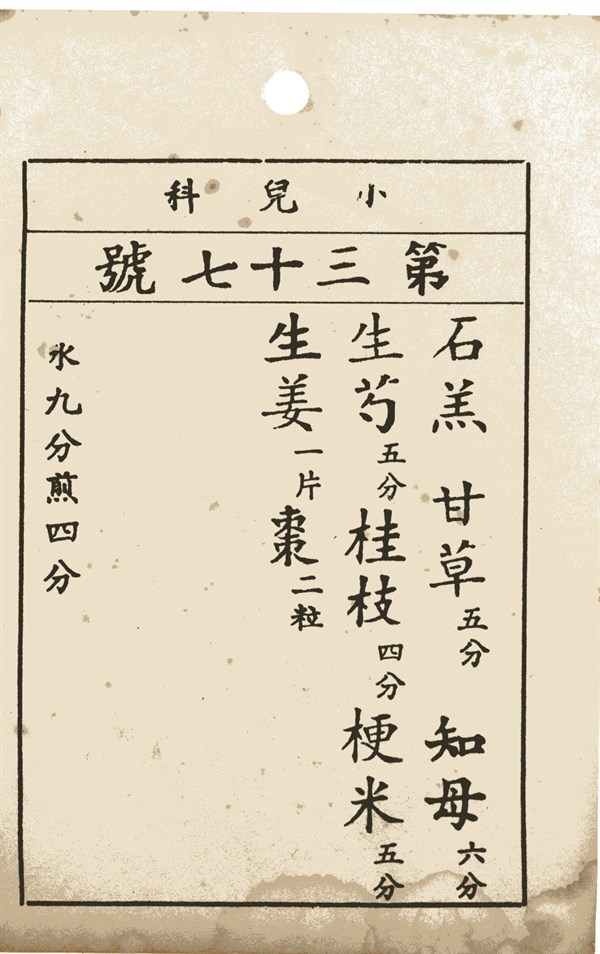 小兒科
第三十七號
石羔 甘草五分 知母六分
生芍五分桂枝四分梗米五分
生姜一片棗二粒
水九分煎四分